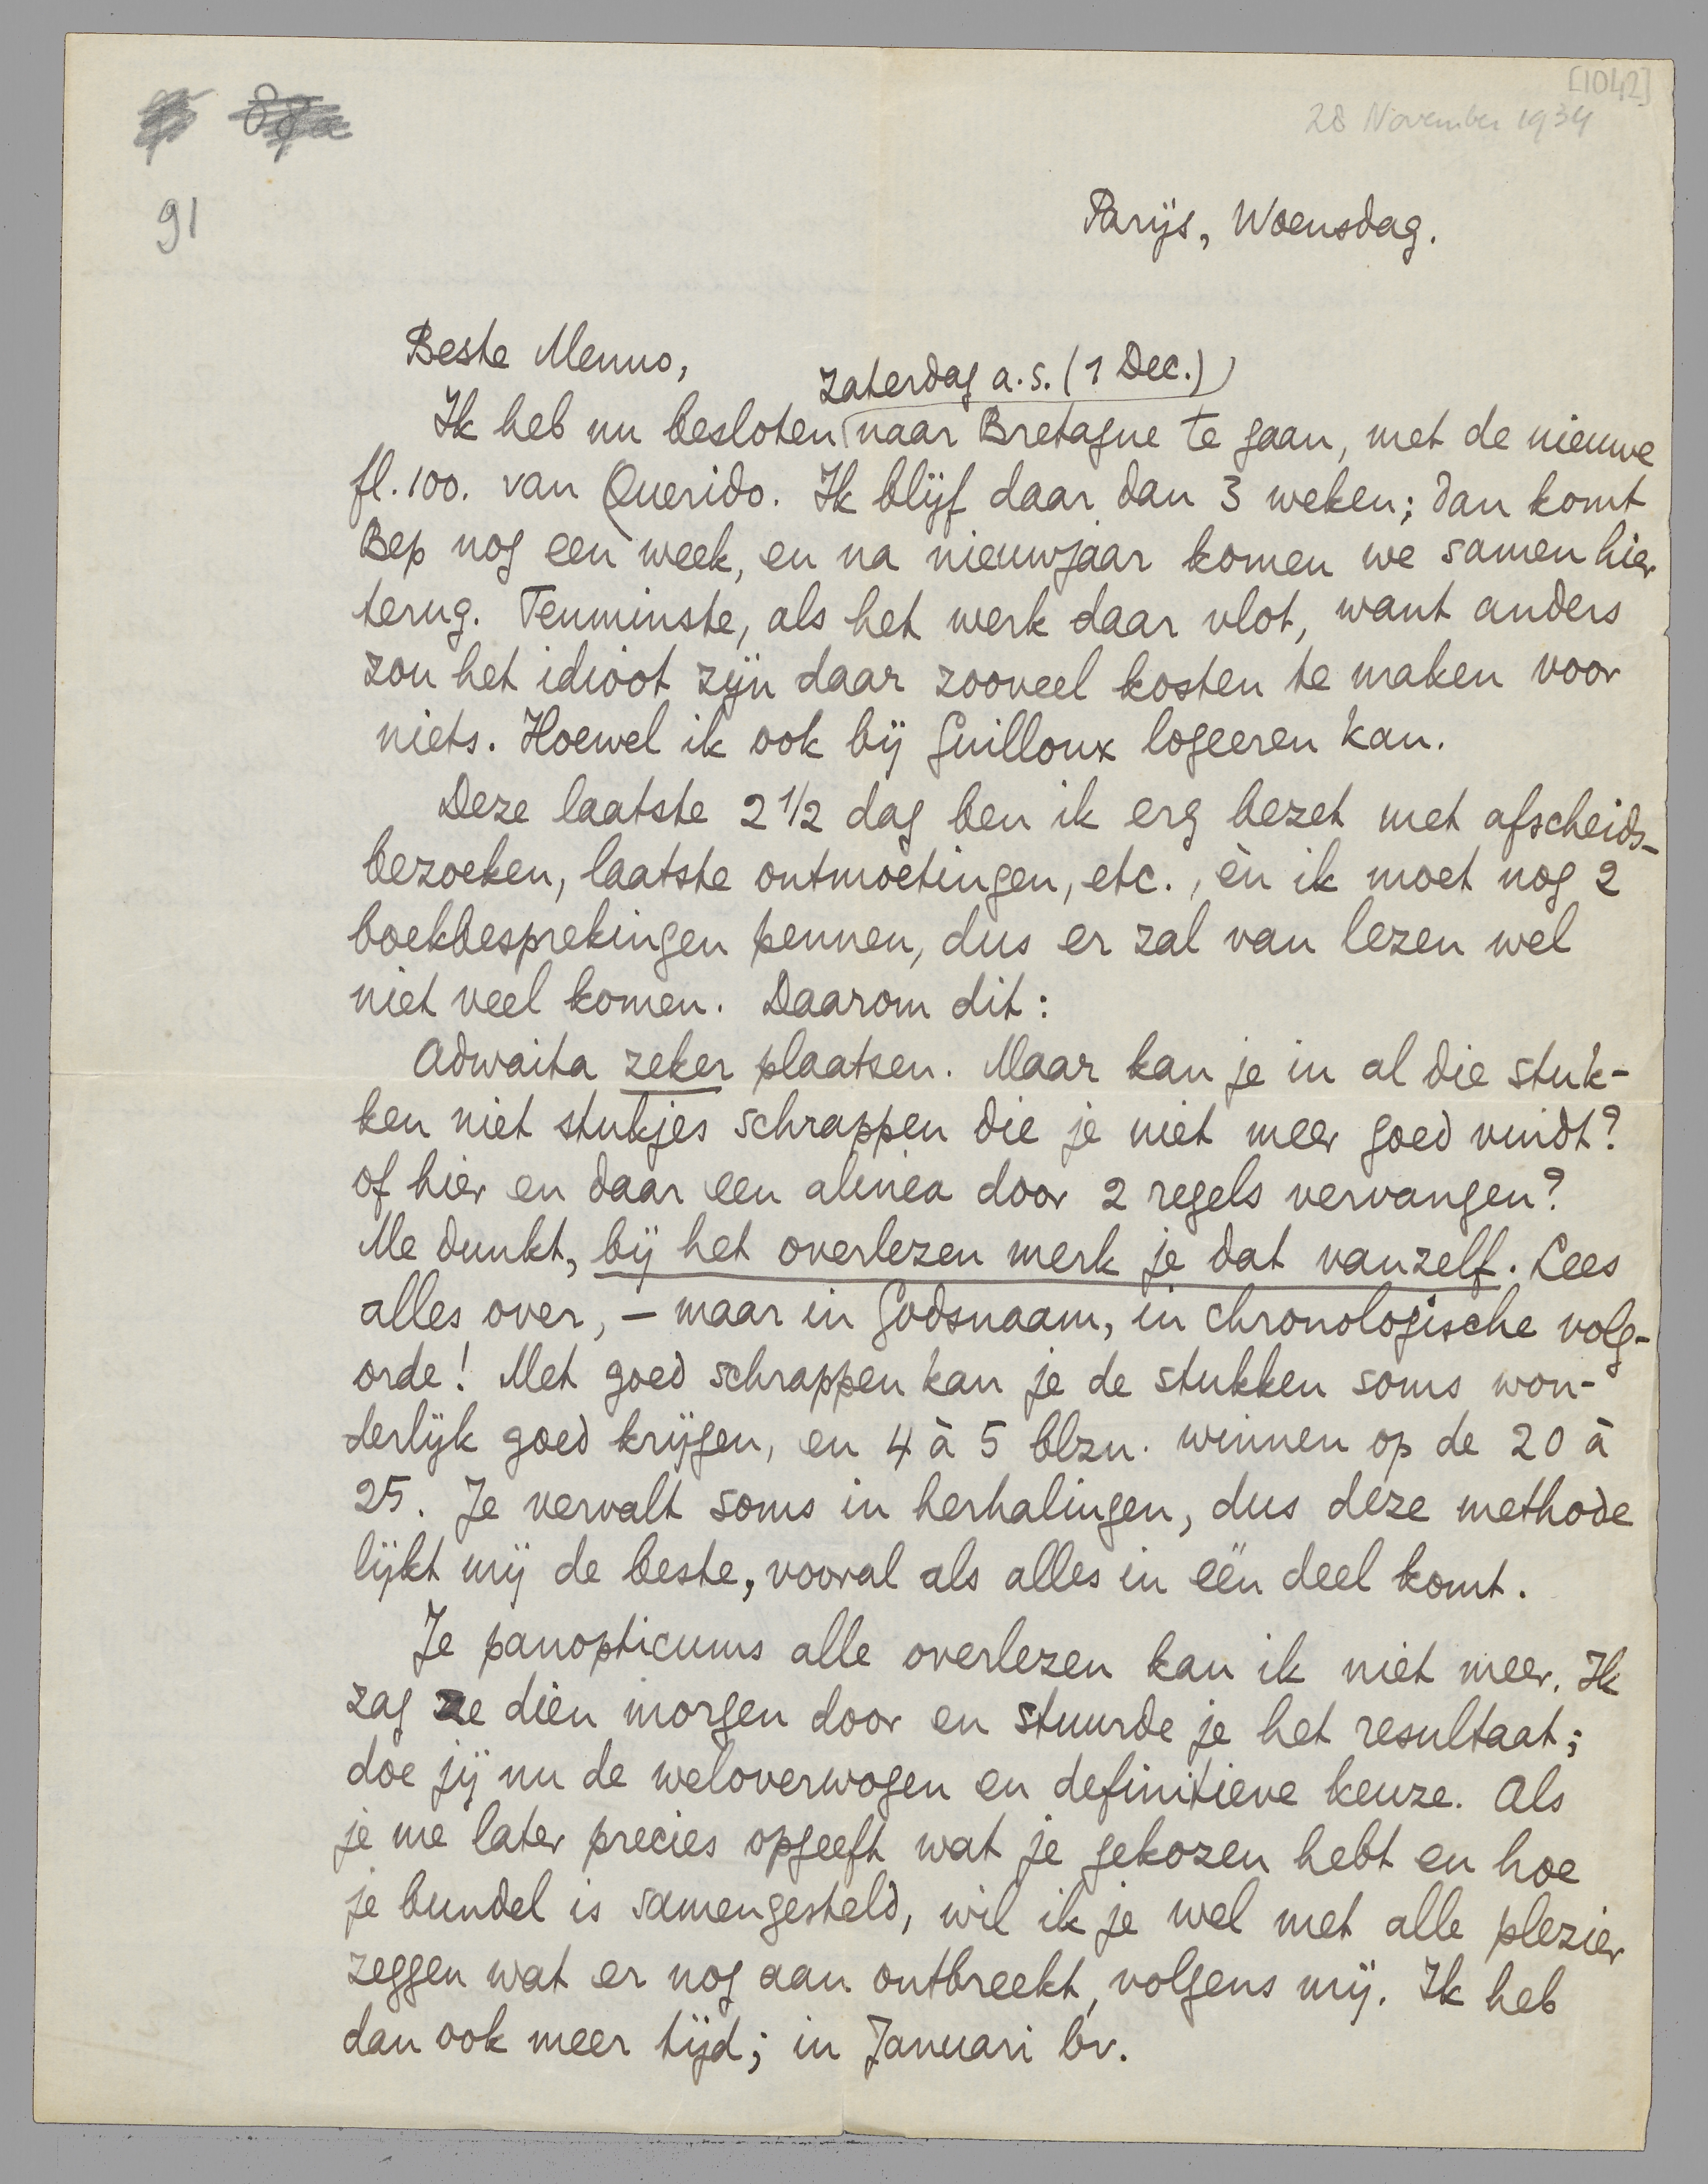 [1042]
28 November 1934
91
Parijs, Woensdag.
Beste Menno,
Zaterdag a.s. (1 Dec.)
Ik heb nu besloten naar Bretagne te gaan, met de nieuwe
fl. 100. van Querido. Ik blijf daar dan 3 weken; dan komt
Bep nog een week, en na nieuwjaar komen we samen hier
terug. Tenminste, als het werk daar vlot, want anders
zou het idioot zijn daar zooveel kosten te maken voor
niets. Hoewel ik ook bij Guilloux logeeren kan.
Deze laatste 2 1/2 dag ben ik erg bezet met afscheids-
bezoeken, laatste ontmoetingen, etc., èn ik moet nog 2
boekbesprekingen pennen, dus er zal van lezen wel
niet veel komen. Daarom dit:
Adwaita zeker plaatsen. Maar kan je in al die stuk-
ken niet stukjes schrappen die je niet meer goed vindt?
of hier en daar een alinea door 2 regels vervangen?
Me dunkt, bij het overlezen merk je dat vanzelf. Lees
alles over, – maar in Godsnaam, in chronologische volg-
orde! Met goed schrappen kan je de stukken soms won-
derlijk goed krijgen, en 4 à 5 blzn. winnen op de 20 à
25. Je vervalt soms in herhalingen, dus deze methode
lijkt mij de beste, vooral als alles in één deel komt.
Je panopticums alle overlezen kan ik niet meer. Ik
zag ze dien morgen door en stuurde je het resultaat;
doe jij nu de weloverwogen en definitieve keuze. Als
je me later precies opgeeft wat je gekozen hebt en hoe
je bundel is samengesteld, wil ik je wel met alle plezier
zeggen wat er nog aan ontbreekt, volgens mij. Ik heb
dan ook meer tijd; in Januari bv.